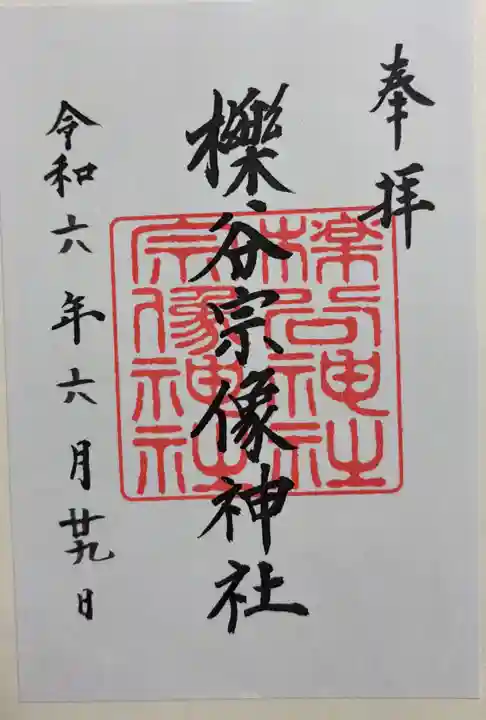 奉拝
櫟谷宗像神社
櫟谷神社
宗像神社
令和六年六月廿九日